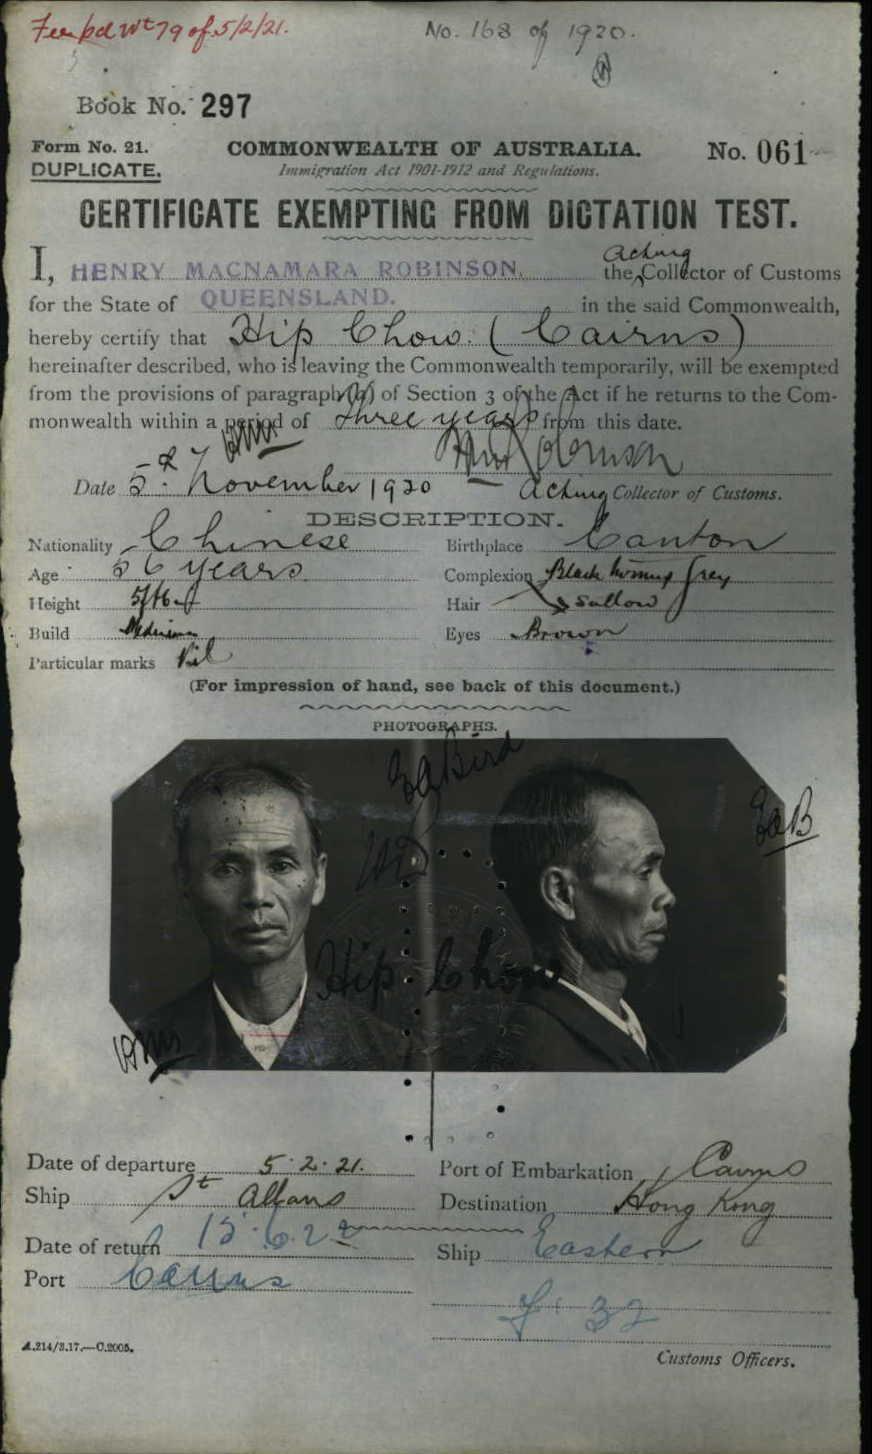 Fee pd Wt 79 of 5/2/21.
No. 168 of 1920.
Book No. 297
Form No. 21.
COMMONWEALTH OF AUSTRALIA.
No. 061
DUPLICATE.
Immigration Act 1901-1912 and Regulations.
CERTIFICATE EXEMPTING FROM DICTATION TEST.
Acting
I, HENRY MACNAMARA ROBINSON, the Collector of Customs
for the State of QUEENSLAND. in the said Commonwealth,
hereby certify that Hip Chow. (Cairns)
hereinafter described, who is leaving the Commonwealth temporarily, will be exempted
from the provisions of paragraph (a) of Section 3 of the Act if he returns to the Com-
monwealth within a period of three years from this date.
HMRobinson
Date 5th November 1920 Acting Collector of Customs.
DESCRIPTION.
Nationality Chinese Birthplace Canton
Age 56 years Complexion Black turning Grey
Height Hair Sallow
Build Medium Eyes Brown
Particular marks Nil
(For impression of hand, see back of this document.)
PHOTOGRAPHS.
Bird
Hip Chow
Date of departure 5.2.21. Port of Embarkation Cairns
Ship St Albans Destination Hong Kong
Date of return 15.6.22 Ship Eastern
Port Cairns
32
A.214/3.17.—C.2005.
Customs Officers.